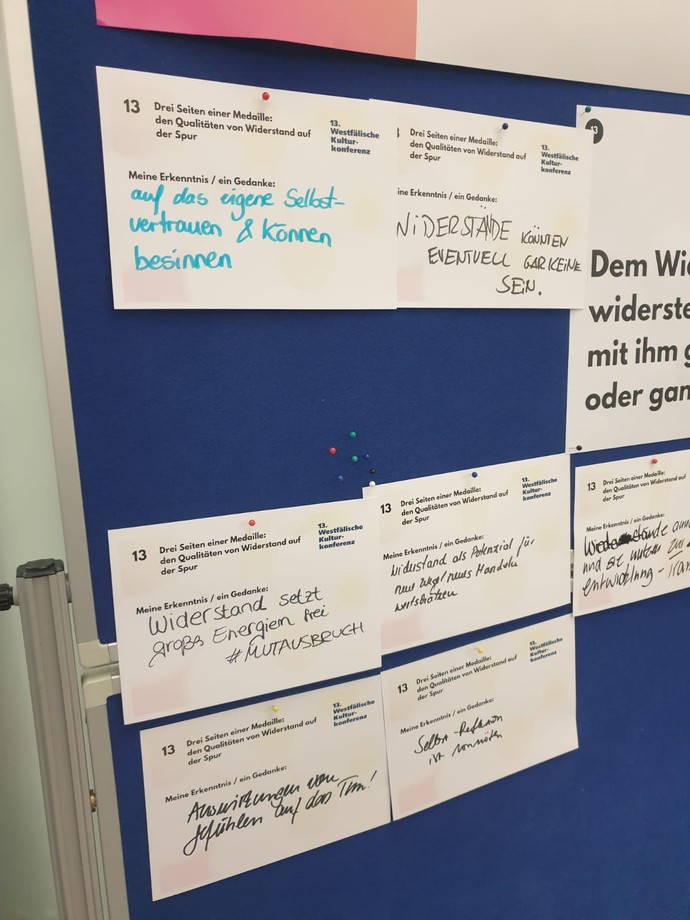 13
Drei Seiten einer Medaille:
den Qualitäten von Widerstand auf
der Spur
13.
Westfälische
Kultur-
konferenz
Meine Erkenntnis / ein Gedanke:
auf das eigene Selbst-
vertrauen & können
besinnen
Drei Seiten einer Medaille:
den Qualitäten von Widerstand auf
der Spur
13.
Westfälische
Kultur-
konferenz
ine Erkenntnis / ein Gedanke:
WIDERSTÄNDE KÖNNTEN
EVENTUELL GAR KEINE
SEIN.
13
Dem Wi
widerste
mit ihm g
oder gan
13
Drei Seiten einer Medaille:
den Qualitäten von Widerstand auf
der Spur
13.
Westfälische
Kultur-
konferenz
Meine Erkenntnis / ein Gedanke:
Widerstand setzt
große Energien frei
#MUTAUSBRUCH
13
Drei Seiten einer Medaille:
den Qualitäten von Widerstand auf
der Spur
13.
Westfälische
Kultur-
konferenz
Meine Erkenntnis / ein Gedanke:
Widerstand als Potenzial für
neue Wege/neues Handeln
13
Drei Seiten einer Medaille:
den Qualitäten von Widerstand auf
der Spur
Meine Erkenntnis / ein Gedanke:
und sie nutzen zur
entwicklung -
13
Drei Seiten einer Medaille:
den Qualitäten von Widerstand auf
der Spur
13.
Westfälische
Kultur-
konferenz
Meine Erkenntnis / ein Gedanke:
Auswirkungen von
gefühlen auf das Tun!
13
Drei Seiten einer Medaille:
den Qualitäten von Widerstand auf
der Spur
13.
Westfälische
Kultur-
konferenz
Meine Erkenntnis / ein Gedanke:
Selbst-Reflexion
ist vonnöten